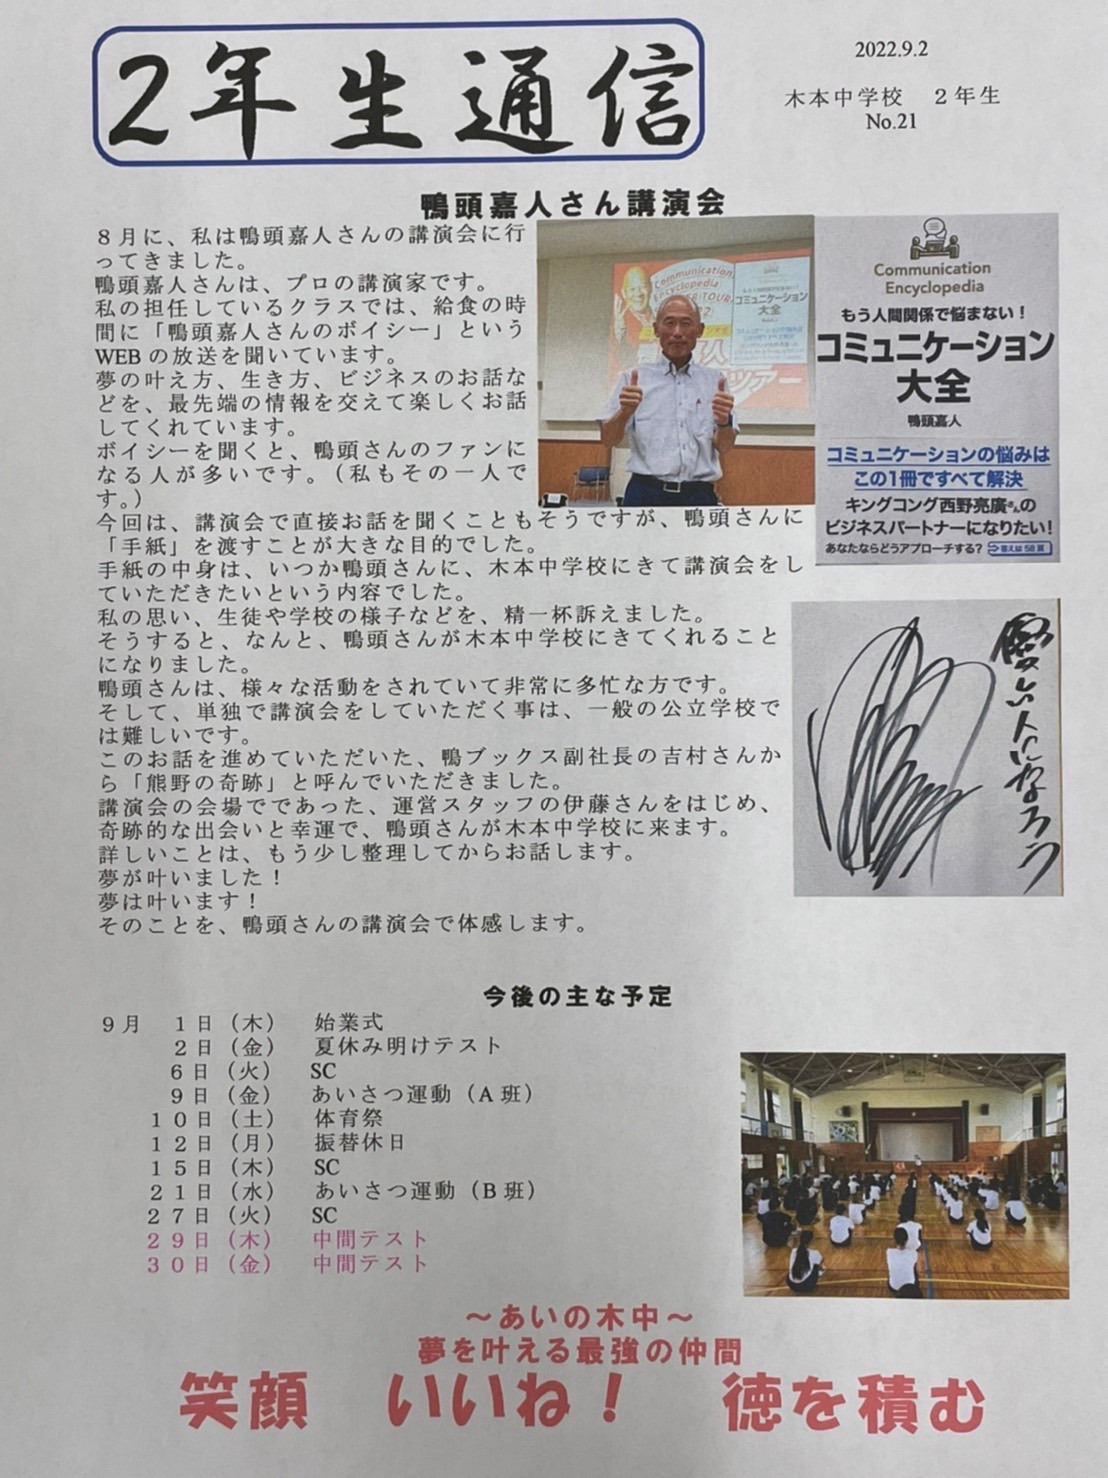 2年生通信
2022.9.2
木本中学校　２年生
No.21
鴨頭嘉人さん講演会
８月に、私は鴨頭嘉人さんの講演会に行
ってきました。
鴨頭嘉人さんは、プロの講演家です。
私の担任しているクラスでは、給食の時
間に「鴨頭嘉人さんのボイシー」という
WEBの放送を聞いています。
夢の叶え方、生き方、ビジネスのお話な
どを、最先端の情報を交えて楽しくお話
してくれています。
ボイシーを聞くと、鴨頭さんのファンに
なる人が多いです。（私もその一人で
す。）
今回は、講演会で直接お話を聞くこともそうですが、鴨頭さんに
「手紙」を渡すことが大きな目的でした。
手紙の中身は、いつか鴨頭さんに、木本中学校にきて講演会をし
ていただきたいという内容でした。
私の思い、生徒や学校の様子などを、精一杯訴えました。
そうすると、なんと、鴨頭さんが木本中学校にきてくれること
になりました。
鴨頭さんは、様々な活動をされていて非常に多忙な方です。
そして、単独で講演会をしていただく事は、一般の公立学校で
は難しいです。
このお話を進めていただいた、鴨ブックス副社長の吉村さんか
ら「熊野の奇跡」と呼んでいただきました。
講演会の会場でであった、運営スタッフの伊藤さんをはじめ、
奇跡的な出会いと幸運で、鴨頭さんが木本中学校に来ます。
詳しいことは、もう少し整理してからお話します。
夢が叶いました！
夢は叶います！
そのことを、鴨頭さんの講演会で体感します。
Communication
Encyclopedia
コミュニケーション
大全
ツアー
Communication
Encyclopedia
もう人間関係で悩まない！
コミュニケーション
大全
鴨頭嘉人
コミュニケーションの悩みは
この1冊ですべて解決
キングコング西野亮廣さんの
ビジネスパートナーになりたい！
あなたならどうアプローチする？ 答えは58頁
優しい人になろう
今後の主な予定
９月　１日（木）　始業式
２日（金）　夏休み明けテスト
６日（火）　SC
９日（金）　あいさつ運動（A班）
１０日（土）　体育祭
１２日（月）　振替休日
１５日（木）　SC
２１日（水）　あいさつ運動（B班）
２７日（火）　SC
２９日（木）　中間テスト
３０日（金）　中間テスト
～あいの木中～
夢を叶える最強の仲間
笑顔　いいね！　徳を積む